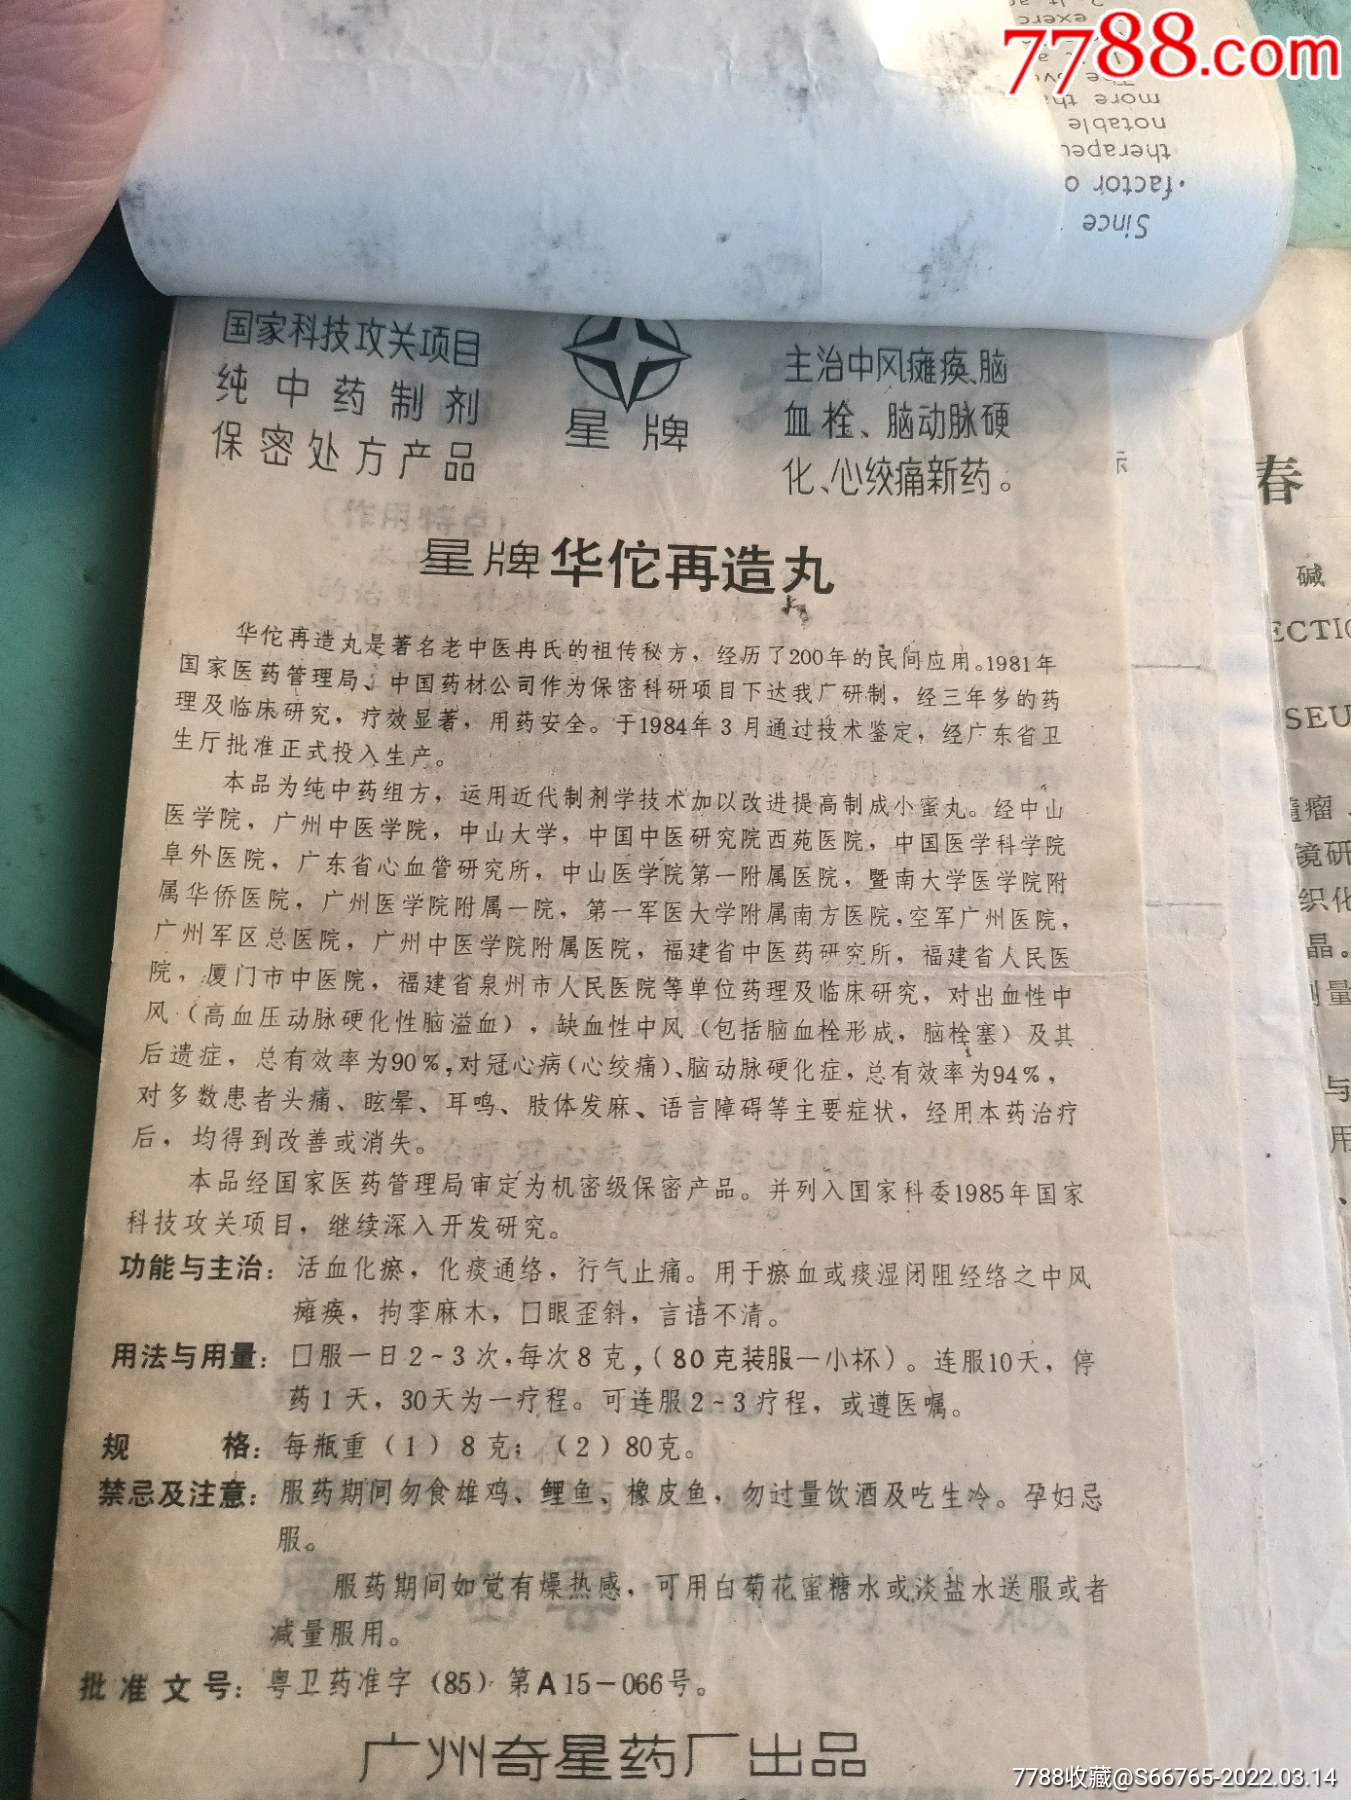 7788.com
2. It a
exerc
The ove
more tha
notable
therapeu
factor o
Since
国家科技攻关项目
纯中药制剂
保密处方产品
星牌
主治中风瘫痪、脑
血栓、脑动脉硬
化、心绞痛新药。
星牌华佗再造丸
华佗再造丸是著名老中医冉氏的祖传秘方，经历了200年的民间应用。1981年
国家医药管理局、中国药材公司作为保密科研项目下达我广研制，经三年多的药
理及临床研究，疗效显著，用药安全。于1984年3月通过技术鉴定，经广东省卫
生厅批准正式投入生产。
本品为纯中药组方，运用近代制剂学技术加以改进提高制成小蜜丸。经中山
医学院，广州中医学院，中山大学，中国中医研究院西苑医院，中国医学科学院
阜外医院，广东省心血管研究所，中山医学院第一附属医院，暨南大学医学院附
属华侨医院，广州医学院附属一院，第一军医大学附属南方医院，空军广州医院，
广州军区总医院，广州中医学院附属医院，福建省中医药研究所，福建省人民医
院，厦门市中医院，福建省泉州市人民医院等单位药理及临床研究，对出血性中
风（高血压动脉硬化性脑溢血），缺血性中风（包括脑血栓形成，脑栓塞）及其
后遗症，总有效率为90％，对冠心病（心绞痛）、脑动脉硬化症，总有效率为94％，
对多数患者头痛、眩晕、耳鸣、肢体发麻、语言障碍等主要症状，经用本药治疗
后，均得到改善或消失。
本品经国家医药管理局审定为机密级保密产品。并列入国家科委1985年国家
科技攻关项目，继续深入开发研究。
功能与主治：活血化瘀，化痰通络，行气止痛。用于瘀血或痰湿闭阻经络之中风
瘫痪，拘挛麻木，口眼歪斜，言语不清。
用法与用量：口服一日2~3次，每次8克，（80克装服一小杯）。连服10天，停
药1天，30天为一疗程。可连服2~3疗程，或遵医嘱。
规　　格：每瓶重（1）8克；（2）80克。
禁忌及注意：服药期间勿食雄鸡、鲤鱼、橡皮鱼，勿过量饮酒及吃生冷。孕妇忌
服。
服药期间如觉有燥热感，可用白菊花蜜糖水或淡盐水送服或者
减量服用。
批准文号：粤卫药准字（85）第A15-066号。
广州奇星药厂出品
春
碱
ECTIO
SEU
瘤、
镜研
织化
晶。
测量
与
用
7788收藏@S66765-2022.03.14